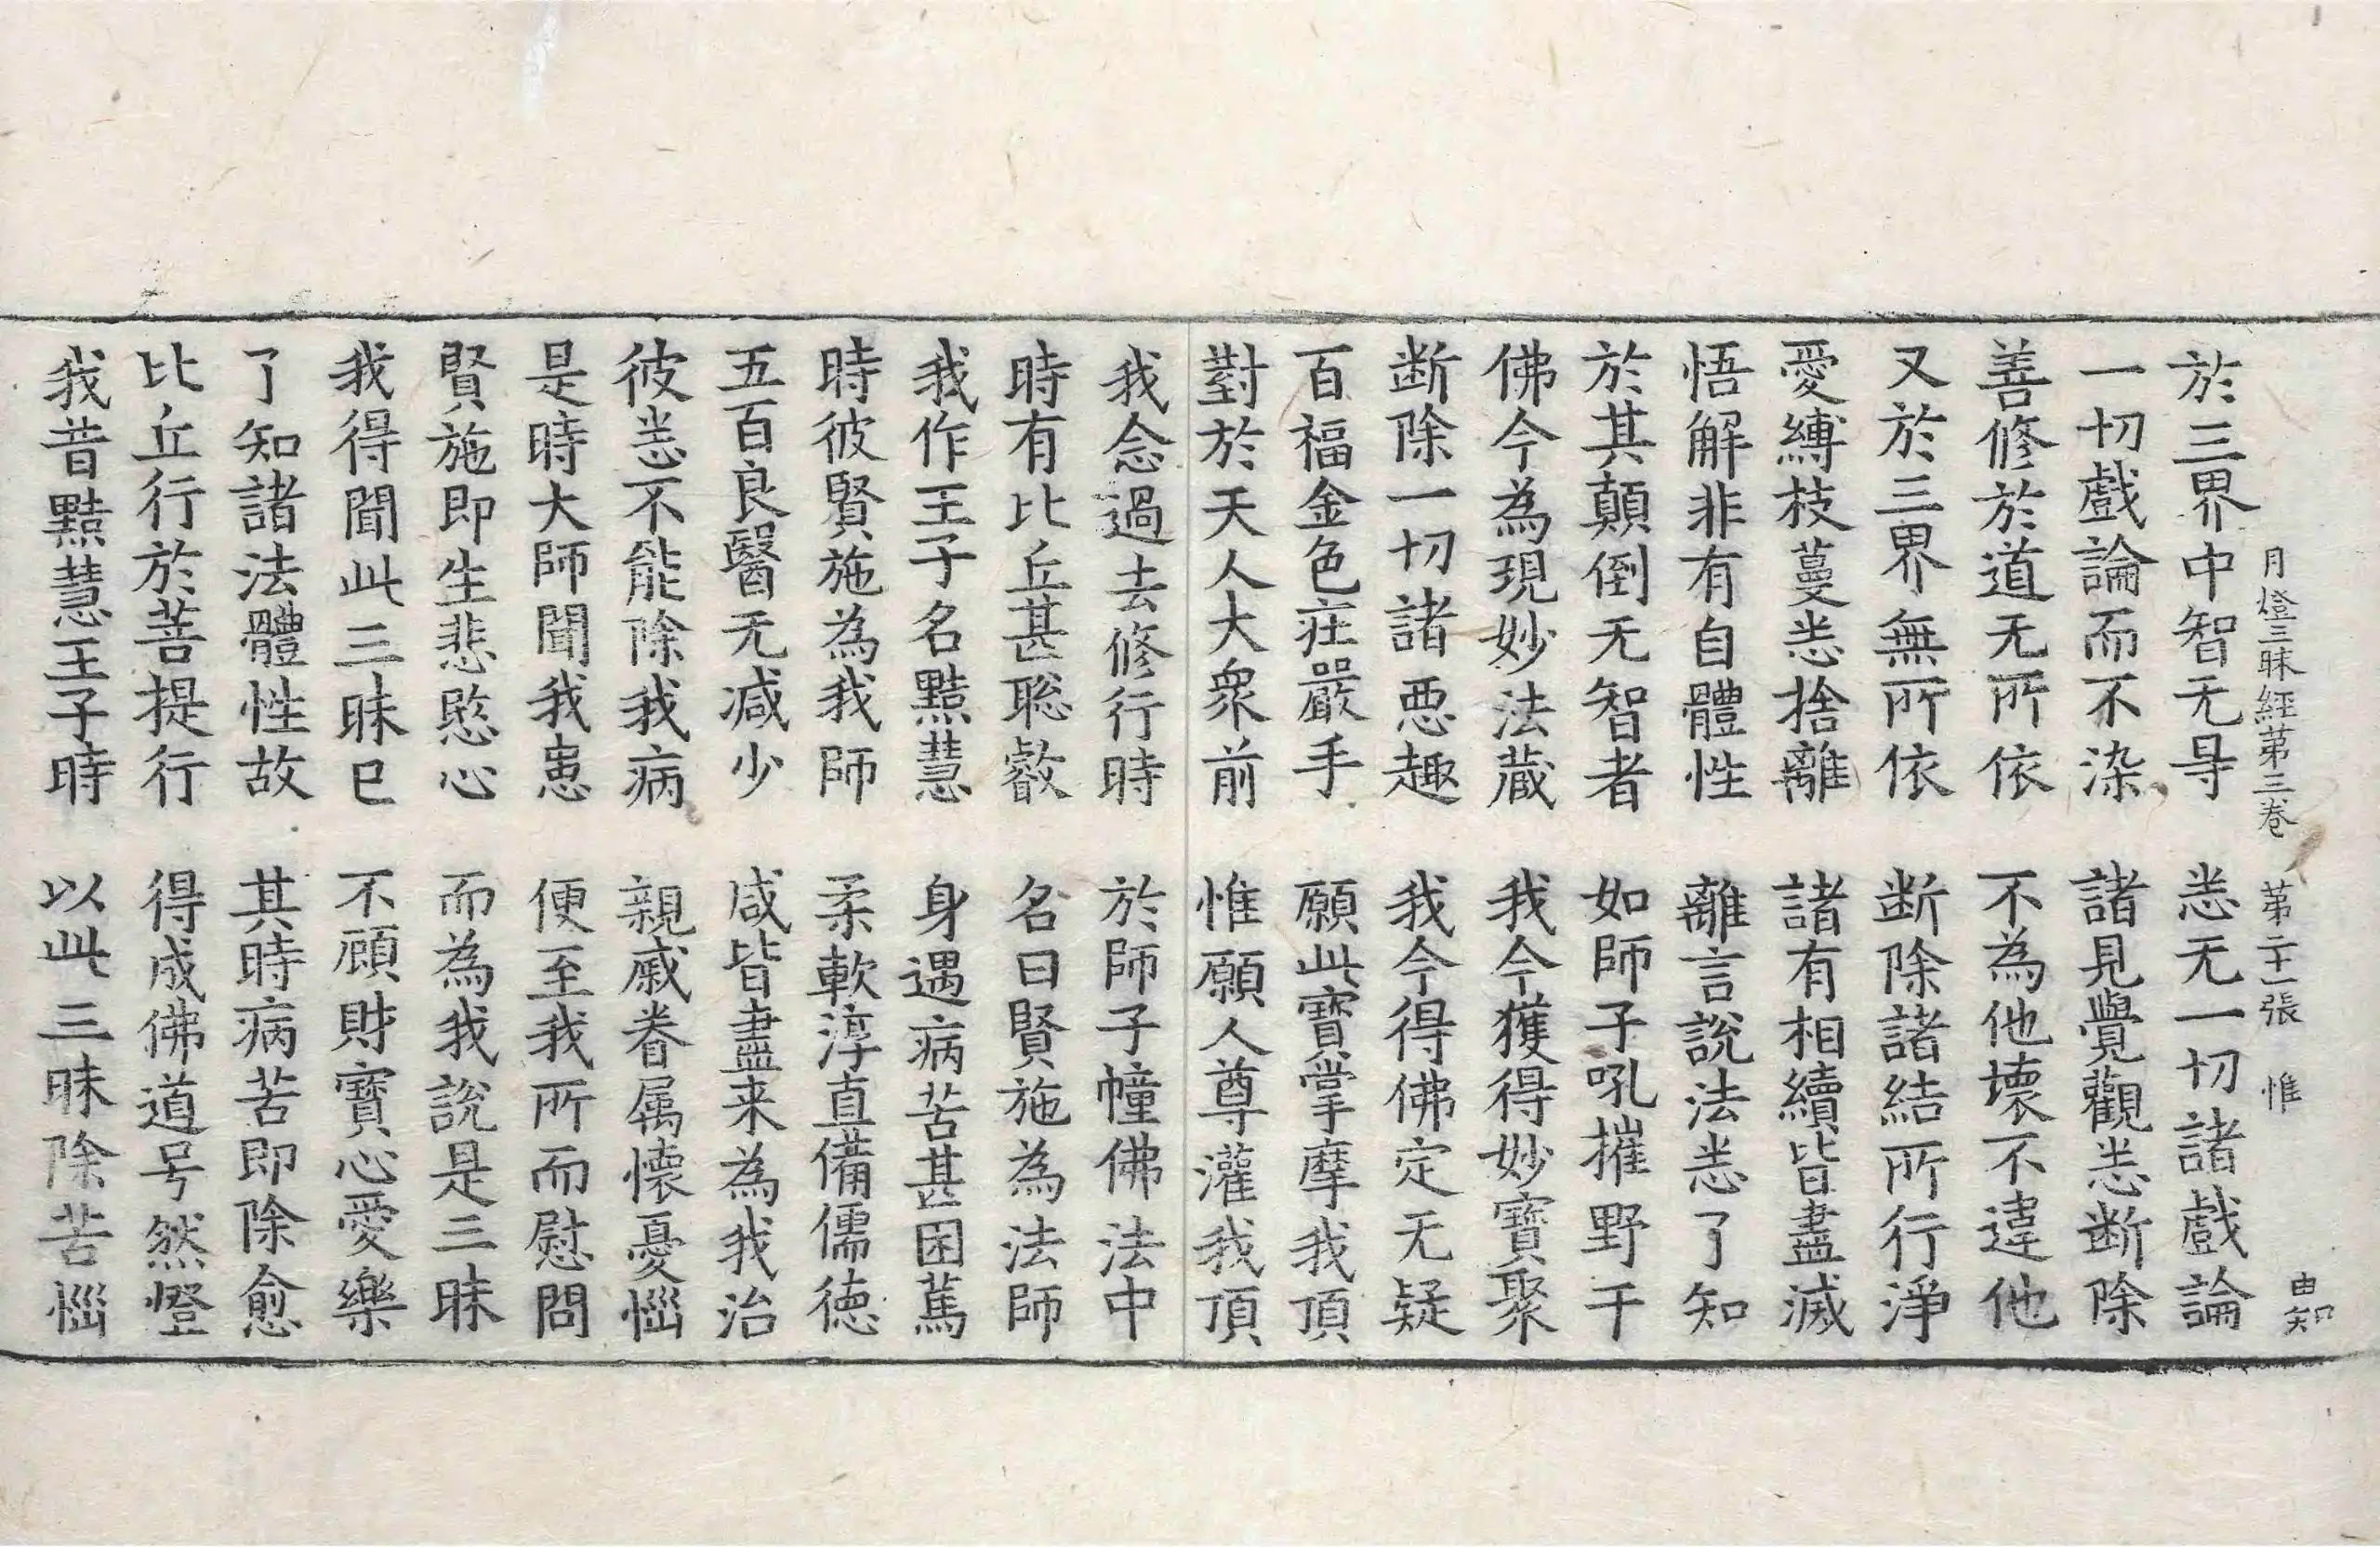 月燈三昧經苐三卷　苐二十一張　惟　由知
於三界中智无㝵　悉无一切諸戲論
一切戲論而不染　諸見覺觀悉断除
善修於道无所依　不為他壞不違他
又於三界無所依　断除諸結所行淨
愛縛枝蔓悉捨離　諸有相續皆盡滅
悟解非有自體性　離言說法悉了知
於其顛倒无智者　如師子吼摧野干
佛今為現妙法蔵　我今獲得妙寶聚
断除一切諸惡趣　我今得佛定无疑
百福金色庄嚴手　願此寶掌摩我頂
對於天人大衆前　惟願人尊灌我頂
我念過去修行時　於師子幢佛法中
時有比丘甚聡叡　名曰賢施為法師
我作王子名黠慧　身遇病苦甚困篤
時彼賢施為我師　柔軟淳直備儒徳
五百良醫无减少　咸皆盡来為我治
彼悉不能除我病　親戚眷属懐憂惱
是時大師聞我患　便至我所而慰問
賢施即生悲愍心　而為我說是三昧
我得聞此三昧已　不顧財寶心愛樂
了知諸法體性故　其時病苦即除愈
比丘行於菩提行　得成佛道号然燈
我昔黠慧王子時　以此三昧除苦惱